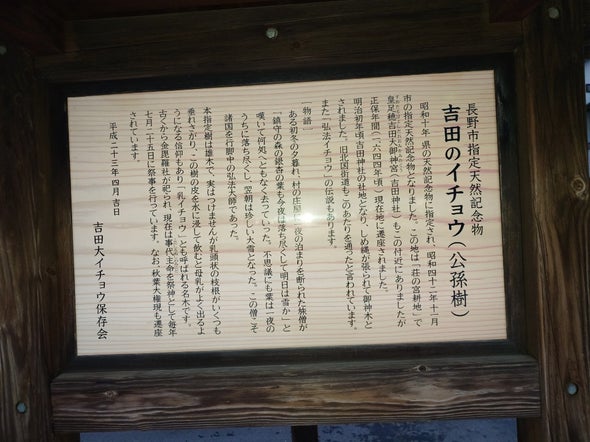 長野市指定天然記念物
吉田のイチョウ(公孫樹)
昭和十年 県の天然記念物に指定され、昭和四十二年十一月
市の指定天然記念物となりました。この地は「荘の宮耕地」で
皇足穂吉田大御神宮(吉田神社)もこの付近にありましたが
正保年間(一六四四年頃)現在地に遷座されました。
明治初年頃吉田神社の社地となり、しめ縄が張られて御神木と
されました。旧北国街道もこのあたりを通ったと言われています。
また「弘法イチョウ」の伝説もあります。
物語
ある初冬の夕暮れ、村の庄屋に一夜の泊まりを断られた旅僧が
「鎮守の森の銀杏の葉も今夜は落ち尽くして明日は雪か」と
嘆いて何処へともなく去っていった。不思議にも葉は一夜の
うちに落ち尽くし、翌朝は珍しい大雪となった。この僧こそ
諸国を行脚中の弘法大師であった。
本指定樹は雄木で、実はつけませんが乳頭状の枝根がいくつも
垂れさがり、この樹の皮を水に浸して飲むと母乳がよく出るよ
うになる信仰もあり「乳イチョウ」とも呼ばれる名木です。
古くから金毘羅社が祀られ、現在は事代主命を祭神として毎年
七月二十五日に祭事を行っています。なお、秋葉大権現も遷座
されています。
平成二十三年四月吉日
吉田大イチョウ保存会